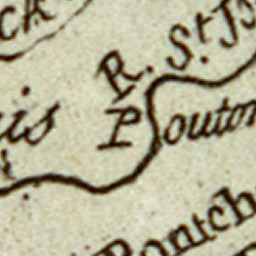 ck
R. St. Jo
uis
P outon
Pontch